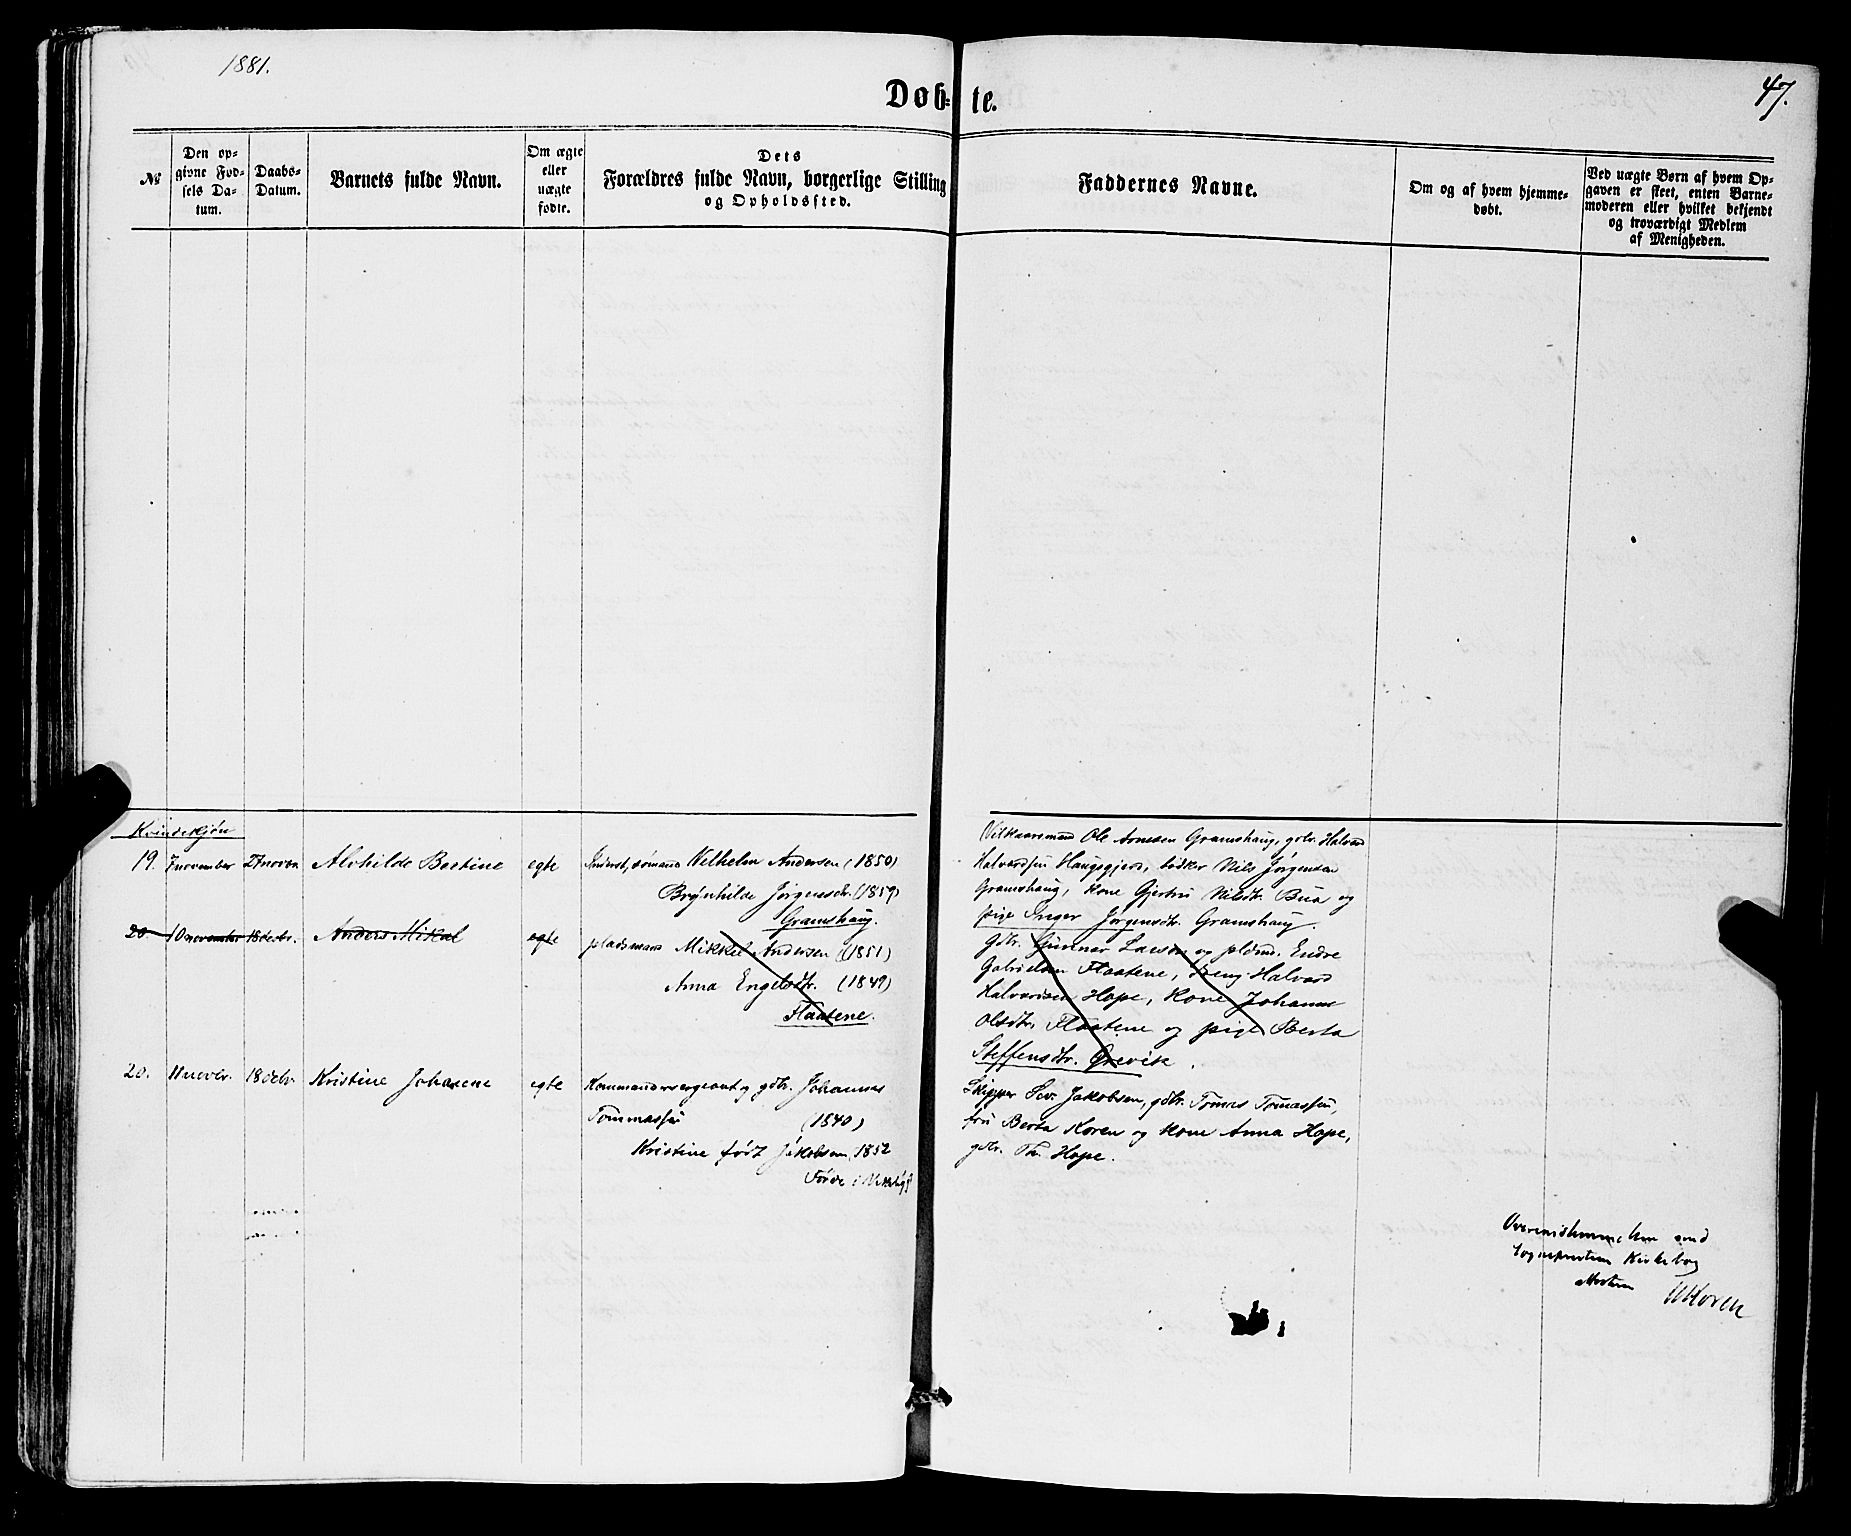 1881.
Døb-te.
47.
№
Den op-
givne Fød-
sels Da-
tum.
Daabs-
Datum.
Barnets fulde Navn.
Om ægte
eller
uægte
fødte.
Dets
Forældres fulde Navn, borgerlige Stilling
og Opholdssted.
Faddernes Navne.
Om og af hvem hjemme-
døbt.
Ved uægte Børn af hvem Op-
gaven er skeet, enten Barne-
moderen eller hvilket bekjendt
og troværdigt Medlem
af Menigheden.
Kvindekjøn
19. 7 november 27 novbr. Alvhilde Bertine egte sømand Velhelm Andersen (1850)
Brynhilde Jørgensdtr. (1859)
Gramshaug.
Vilkaarsmand Ole Arnesen Gramshaug, gdbr. Halvard
Halvardsen Haugsgjerd, bødker Nils Jørgensen
Gramshaug, kone Gjertru Nilsdtr. Bua og
pige Inger Jørgensdtr. Gramshaug.
20. 10 november 18 decbr. Anders Mikal egte pladsmand Mikkel Andersen (1851)
Anna Engelsdtr. (1849)
Flaatene.
gdbr. Gunnar Larsen og pldmd. Endre
Gabrielsen Flaatene, dreng Halvard
Halvardsen Hope, kone Johanne
Olsdtr. Flaatene og pige Berta
Steffensdtr. Ørevik.
20. 11 novbr. 18 decbr. Kristine Johanne egte Kommandersergeant og gdbr. Johannes
Tommassen (1840)
Kristine født Jakobsen, 1852
Førde i
Skipper Sev. Jakobsen, gdbr. Tomas Tomassen,
fru Berta Koren og kone Anna Hope,
gdbr. Th. Hope.
Overensstemmelse med
Sogneprestens Kirkebog
attesteres
Koren